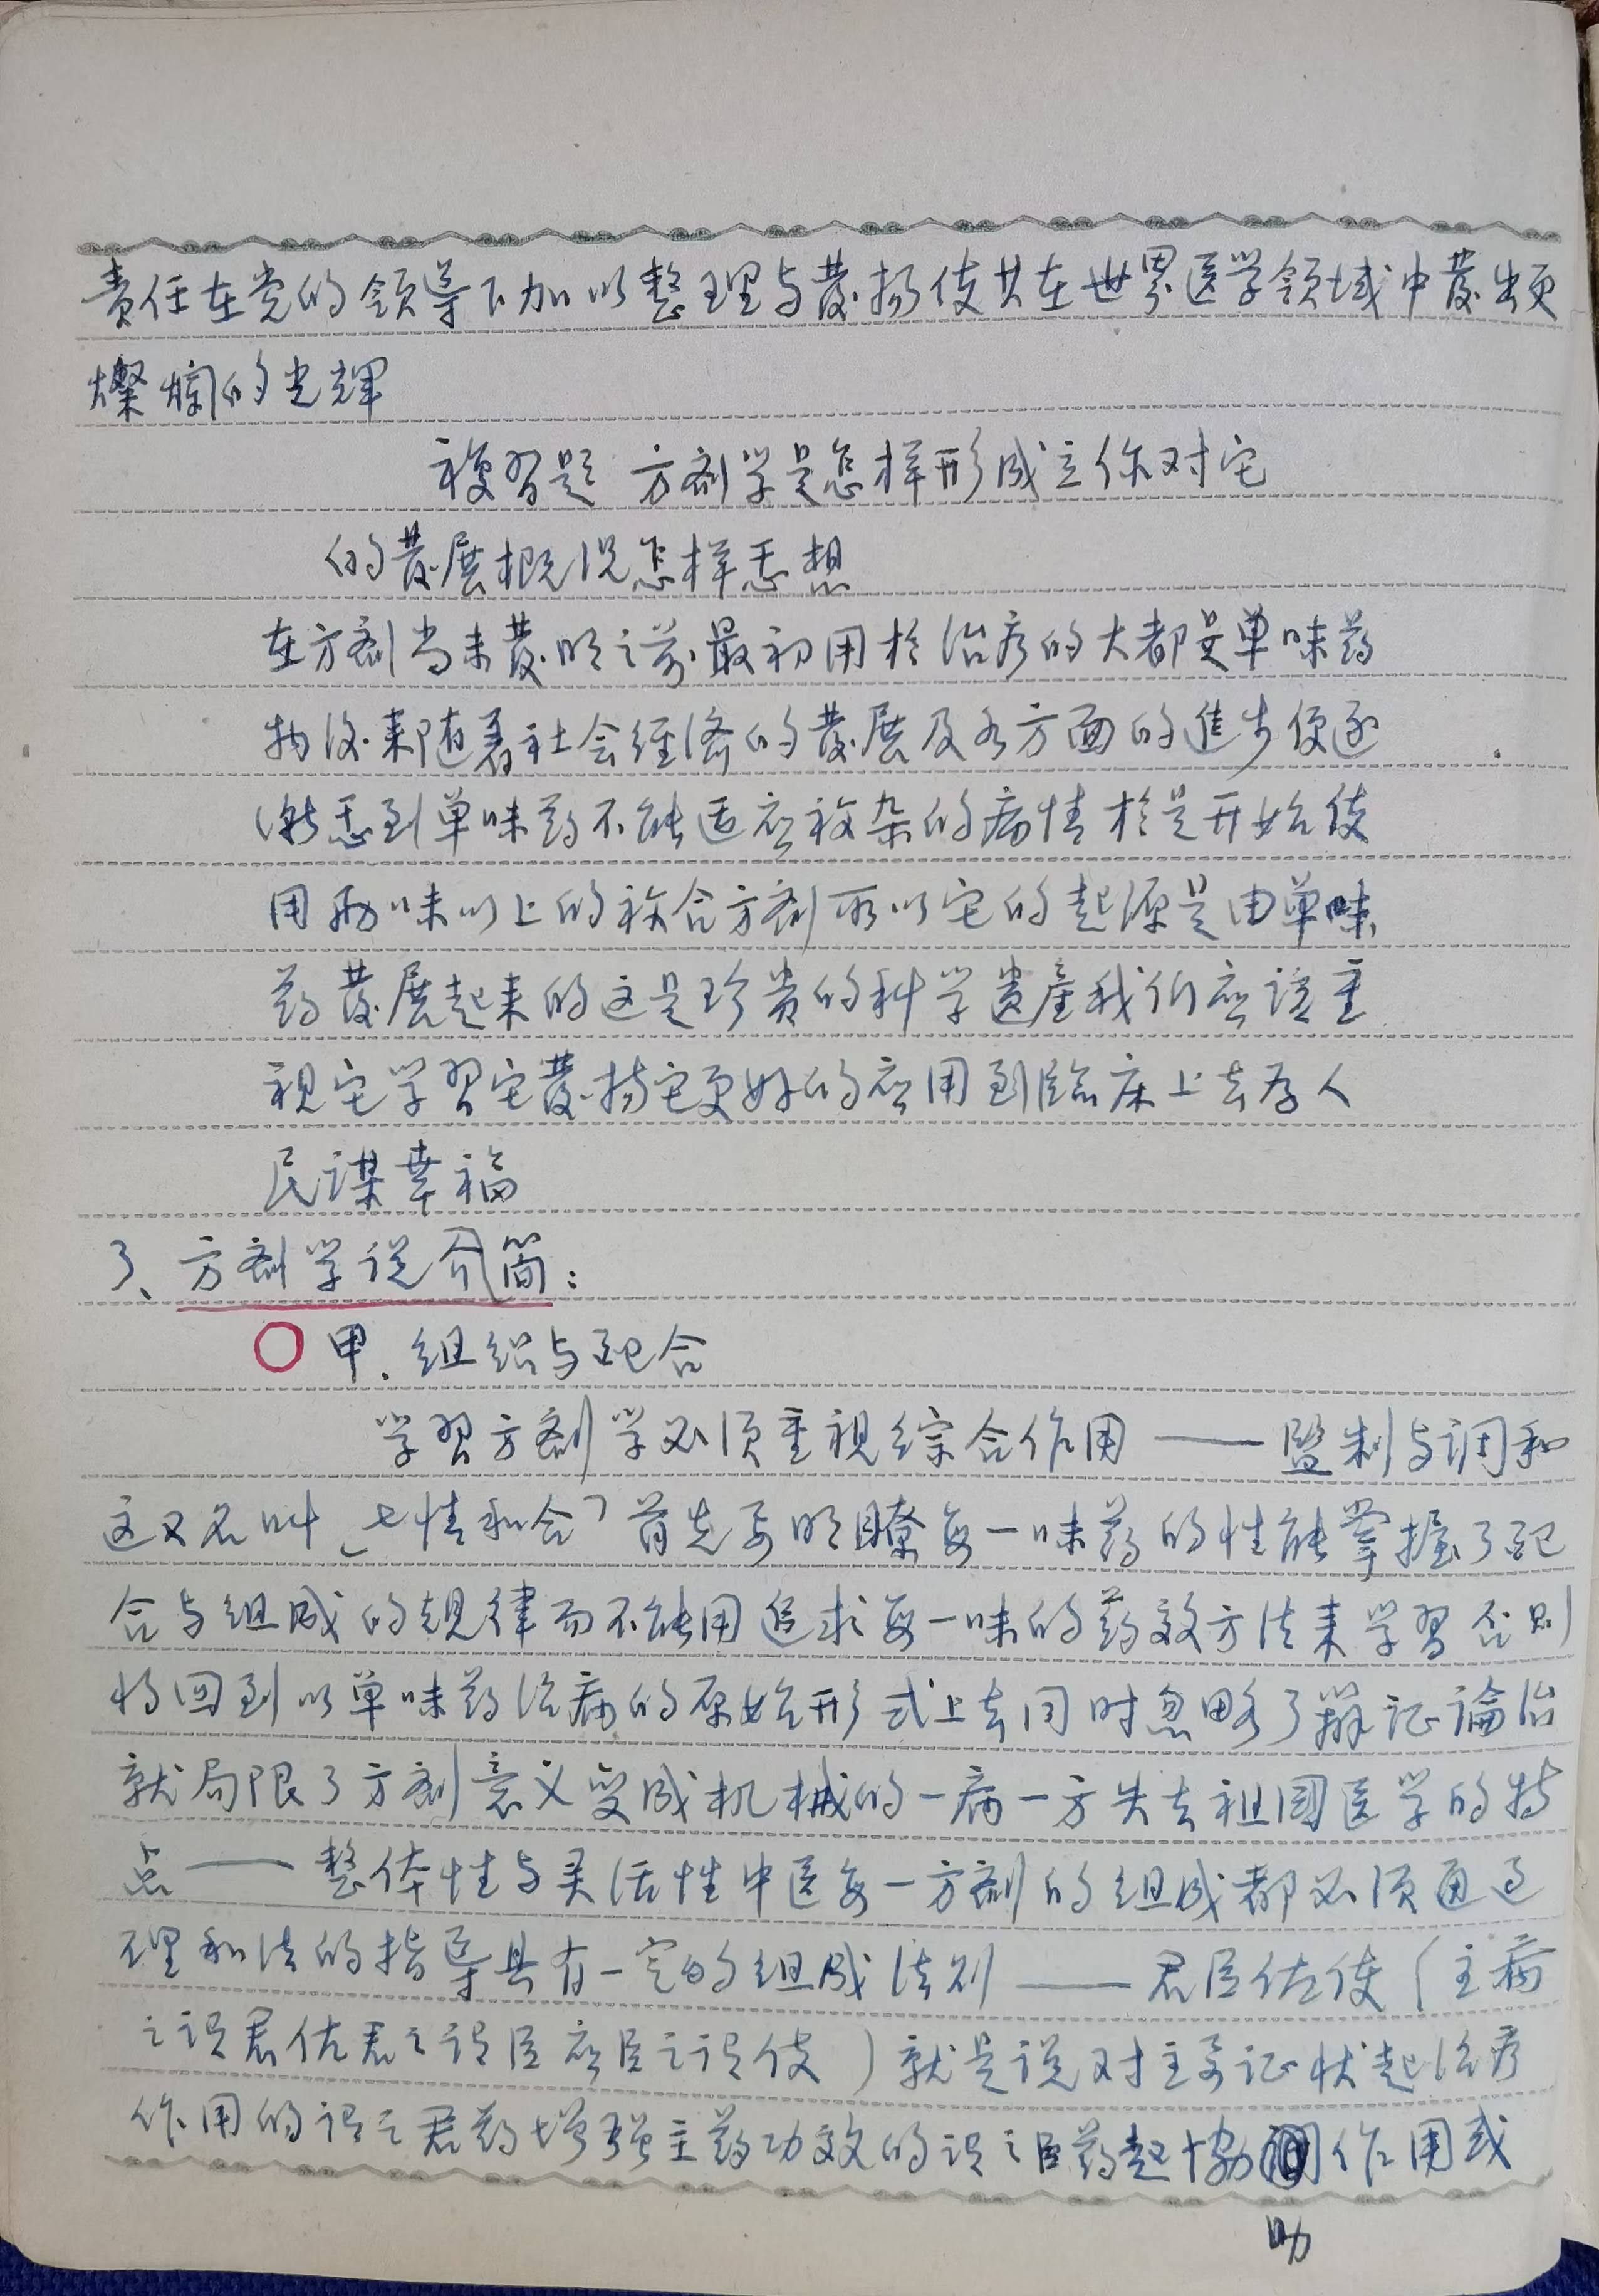 责任在党的领导下加以整理与發揚使其在世界医学领域中發出更
燦烂的光輝
複習题 方剂学是怎样形成立你对它
的發展概况怎样
在方剂尚未發明之前最初用於治疗的大都是单味药
物後来随着社会经济的發展及各方面的進步便逐
渐 到单味药不能适应複杂的病情於是开始使
用两味以上的複合方剂所以它的起源是由单味
药發展起来的这是珍贵的科学遗産我们应该重
視它学習它發揚它更好的应用到臨床上去为人
民谋幸福
3、方剂学说介简：
甲、组织与配合
学習方剂学必须重視综合作用——监制与调和
这又名叫「七情和合」首先要明瞭每一味药的性能掌握了配
合与组成的规律而不能用追求每一味的药效方法来学習否则
将回到以单味药治病的原始形式上去同时忽略了辩证論治
就局限了方剂意义变成机械的一病一方失去祖国医学的特
点——整体性与灵活性中医每一方剂的组成都必须通过
理和法的指导具有一定的组成法则——君臣佐使（主病
之谓君佐君之谓臣应臣之谓使）就是说对主要证状起治疗
作用的谓之君药增强主药功效的谓之臣药起协 作用或
助